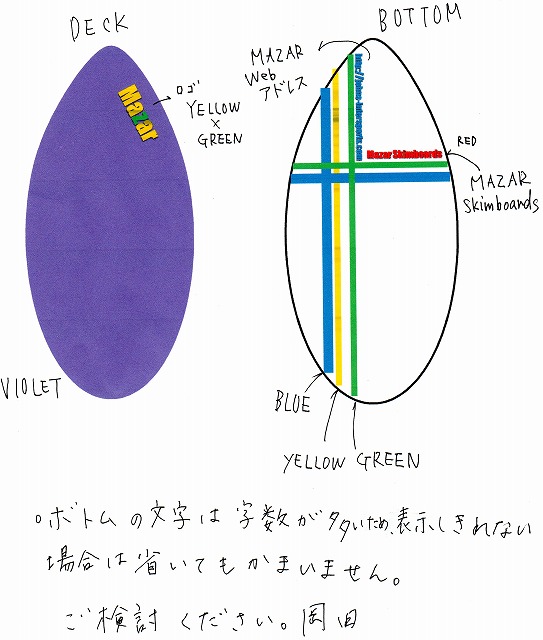 DECK
BOTTOM
MAZAR
Web
アドレス
ロゴ
YELLOW
×
GREEN
Mazar
Mazar Skimboards
RED
MAZAR
Skimboards
VIOLET
BLUE
YELLOW GREEN
○ボトムの文字は字数が多いため、表示しきれない
場合は省いてもかまいません。
ご検討ください。岡田